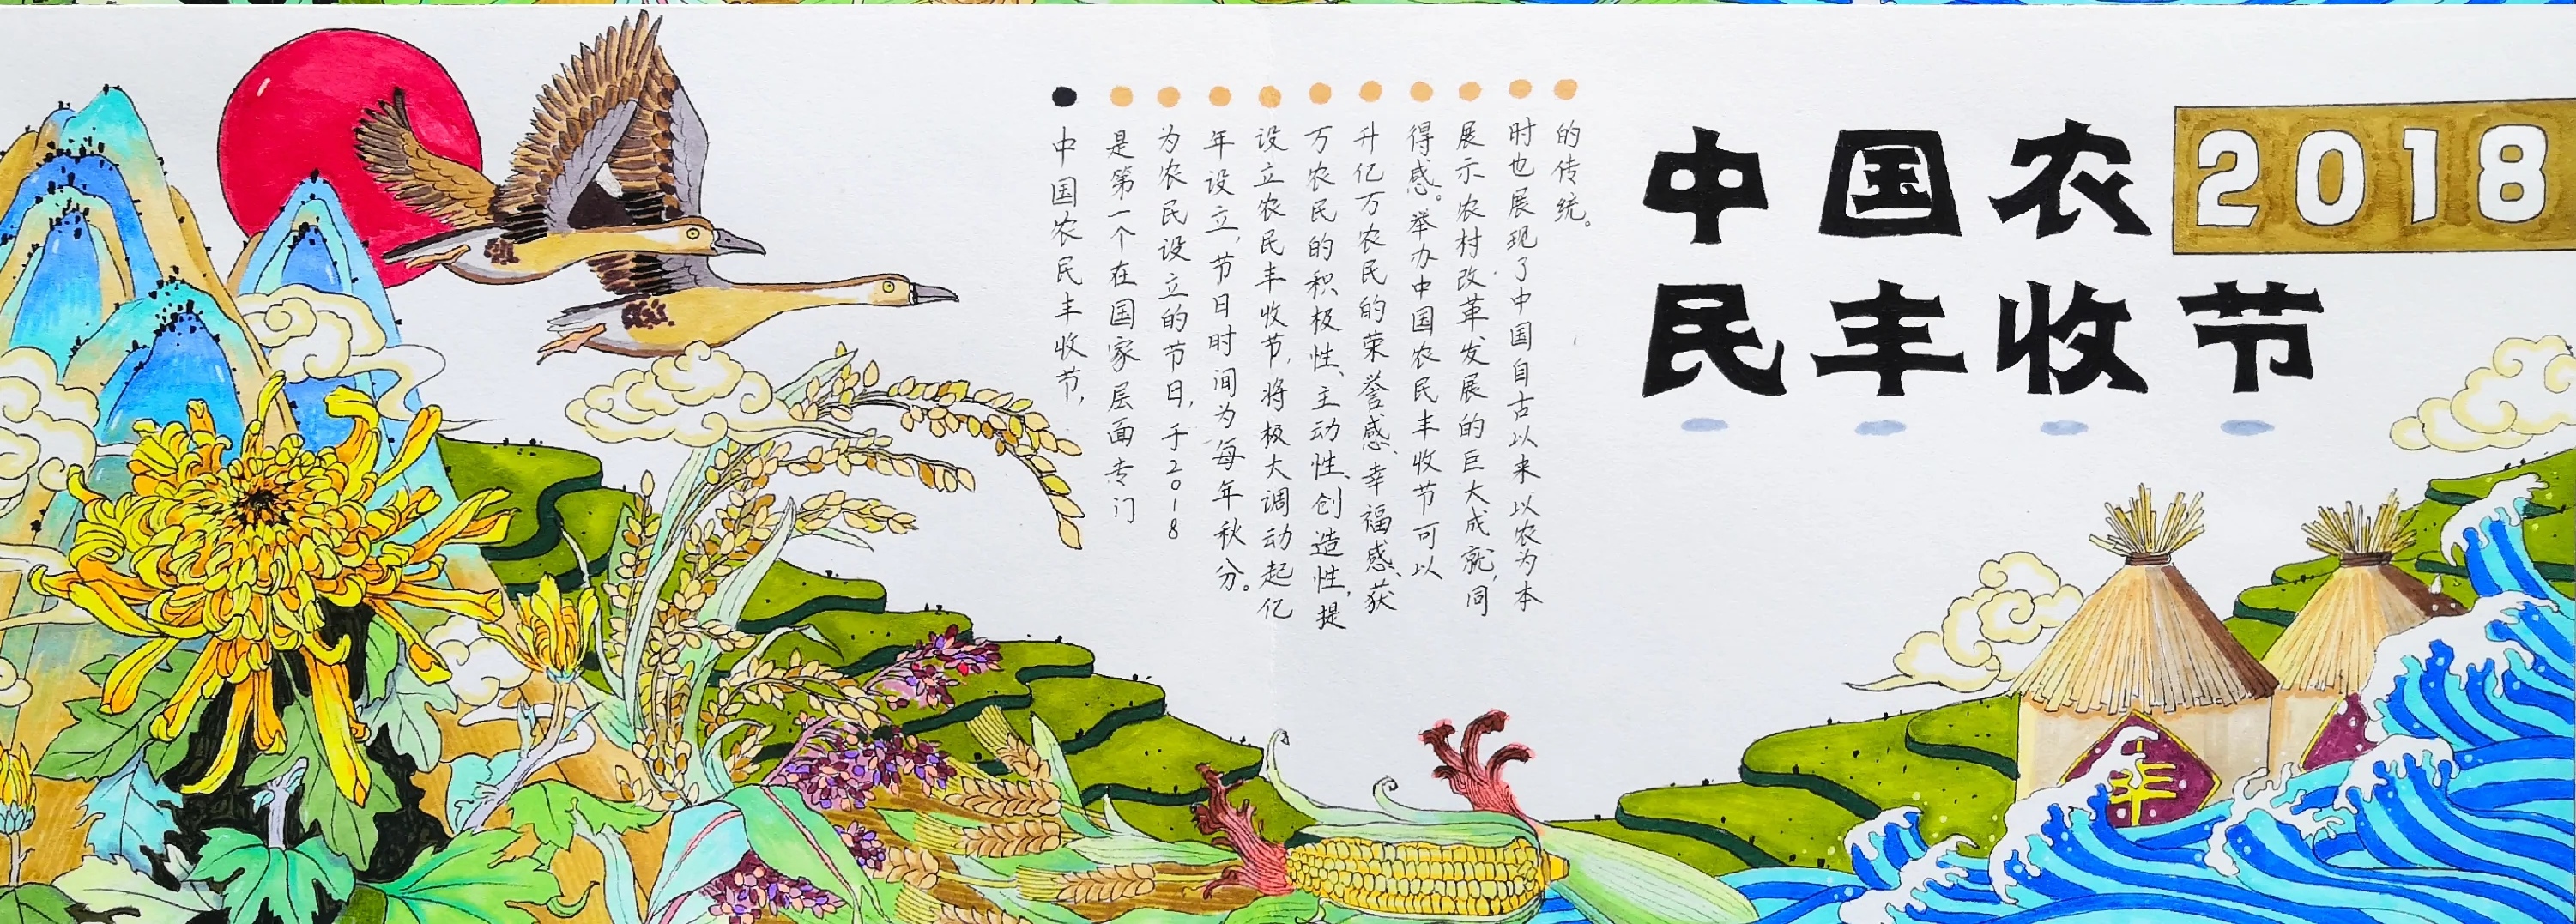 中国农民丰收节，
是第一个在国家层面专门
为农民设立的节日，于2018
年设立，节日时间为每年秋分。
设立农民丰收节，将极大调动起亿
万农民的积极性、主动性、创造性，提
升亿万农民的荣誉感、幸福感、获
得感。举办中国农民丰收节可以
展示农村改革发展的巨大成就，同
时也展现了中国自古以来以农为本
的传统。
中国农
2018
民丰收节
丰